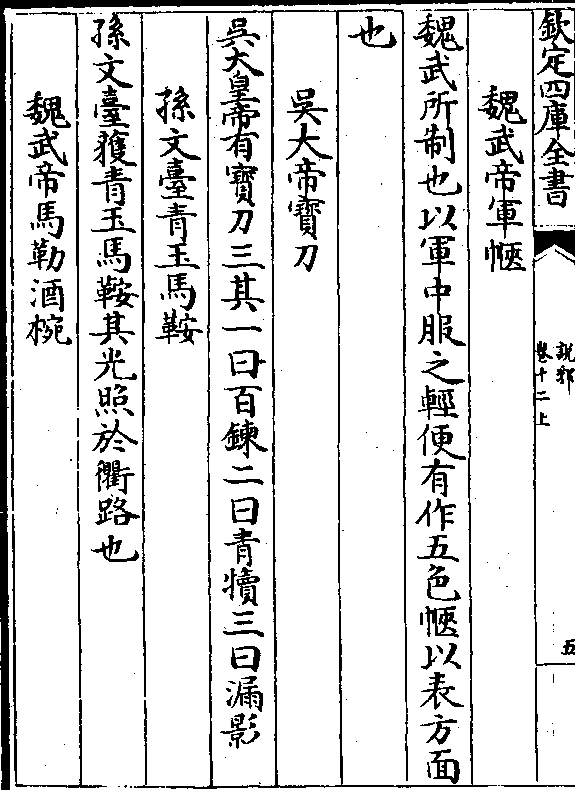 欽定四庫全書
説郛
卷十二上
五
魏武帝軍㡋
魏武所制也以軍中服之輕便有作五色㡋以表方面
也
吳大帝寶刀
吳大皇帝有寶刀三其一曰百鍊二曰青犢三曰漏影
孫文臺青玉馬鞍
孫文臺獲青玉馬鞍其光照於衢路也
魏武帝馬勒酒椀